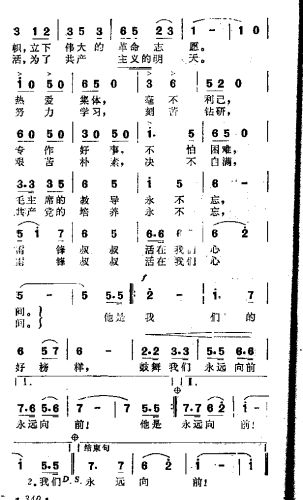 3 312 | 35 353 | 65 23 | 1 - | 10 |
帜,立下 伟大的 革命志 愿。
活,为了 共产 主义的明 天。
10 50 | 65 0 | 3 6 | 52 0 |
热 爱 集体, 毫 不 利己,
努 力 学习, 刻 苦 钻研,
60 50 | 30 50 | 1. 5 | 65 0 |
专 作 好 事, 不 怕 困难,
艰 苦 朴 素, 决 不 自满,
3.3 35 | 5.5 35 | 1 5 | 6 - |
毛主 席的 教 导 永 不 忘,
共产 党的 培 养 永 不 忘,
5 1 7 | 6 5 | 6.6 6 | 6 2 |
雷 锋 叔叔 活在 我们 心
雷 锋 叔叔 活在 我们 心
f
5 - | 5 5.5 | 2 - | 1. 7 |
间。 他是 我 们的
间。
6 57 | 6 - | 2.2 3.3 | 5.5 6.6 |
好 榜 样, 鼓舞 我们 永远 向前
1. 2.
7.6 5 6 | 6 - | 7 5.5 | 7.7 6 2 | 1 - |
永远向 前! 他是 永远向 前!
结束句
1 5.5 | 7. 7 | 6 2 | 1 - | 1 0
2.我们 D.S.永 远 向 前!
· 340 ·